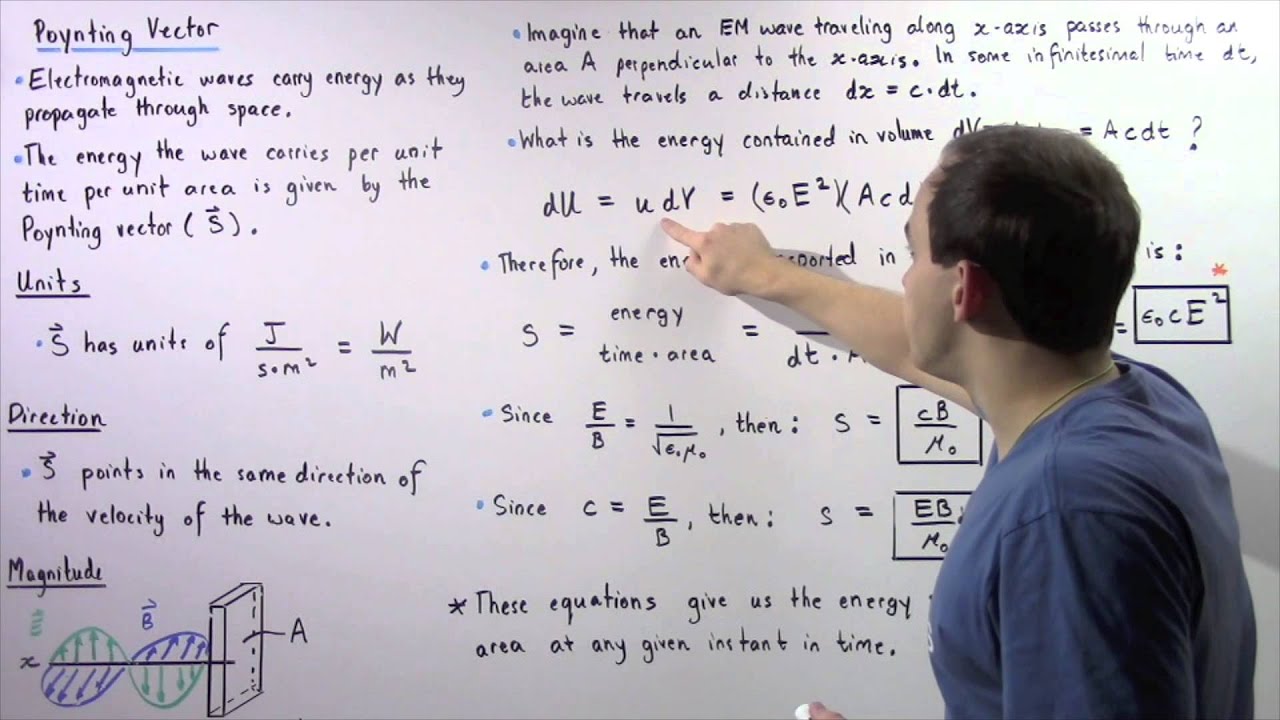 Poynting Vector
• Electromagnetic waves carry energy as they
propagate through space.
• The energy the wave carries per unit
time per unit area is given by the
Poynting vector (S⃗).
Units
• S⃗ has units of J/s·m² = W/m²
Direction
• S⃗ points in the same direction of
the velocity of the wave.
Magnitude
B⃗
A
x
• Imagine that an EM wave traveling along x-axis passes through an
area A perpendicular to the x-axis. In some infinitesimal time dt,
the wave travels a distance dx = c·dt.
• What is the energy contained in volume = Acdt ?
dU = udV = (ϵ₀E²)(Acd
• Therefore, the in is:
*
S = energy/time·area = dt · = ϵ₀cE²
• Since E/B = 1/√ϵ₀μ₀, then: S = cB/μ₀
• Since c = E/B, then: S = EB/μ₀
* These equations give us the energy
area at any given instant in time.